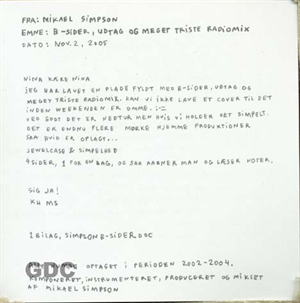 FRA: MIKAEL SIMPSON
EMNE: B-SIDER, UDTAG OG MEGET TRISTE RADIOMIX
DATO: NOV. 2, 2005
NINA KÆRE NINA
JEG HAR LAVET EN PLADE FYLDT MED B-SIDER, UDTAG OG
MEGET TRISTE RADIOMIX. KAN VI IKKE LAVE ET COVER TIL DET
INDEN WEEKENDEN ER OMME. :-)
VED GODT DET ER HELT MEN HVIS VI HOLDER DET SIMPELT.
DET ER ENDNU FLERE MØRKE HJEMME PRODUKTIONER
SÅ HVID ER OPLAGT...
JEWELCASE & SIMPELOLD
4 SIDER, 1 FOR EN BAG, OG SÅ ÅBNER MAN OG LÆSER NOTER.
SIG JA!
KH MS
1 BILAG, SIMPSON B-SIDER.DOC
GDC
OPTAGET I PERIODEN 2002-2004.
KOMPONERET, INSTRUMENTERET, PRODUCERET OG MIKSET
AF MIKAEL SIMPSON